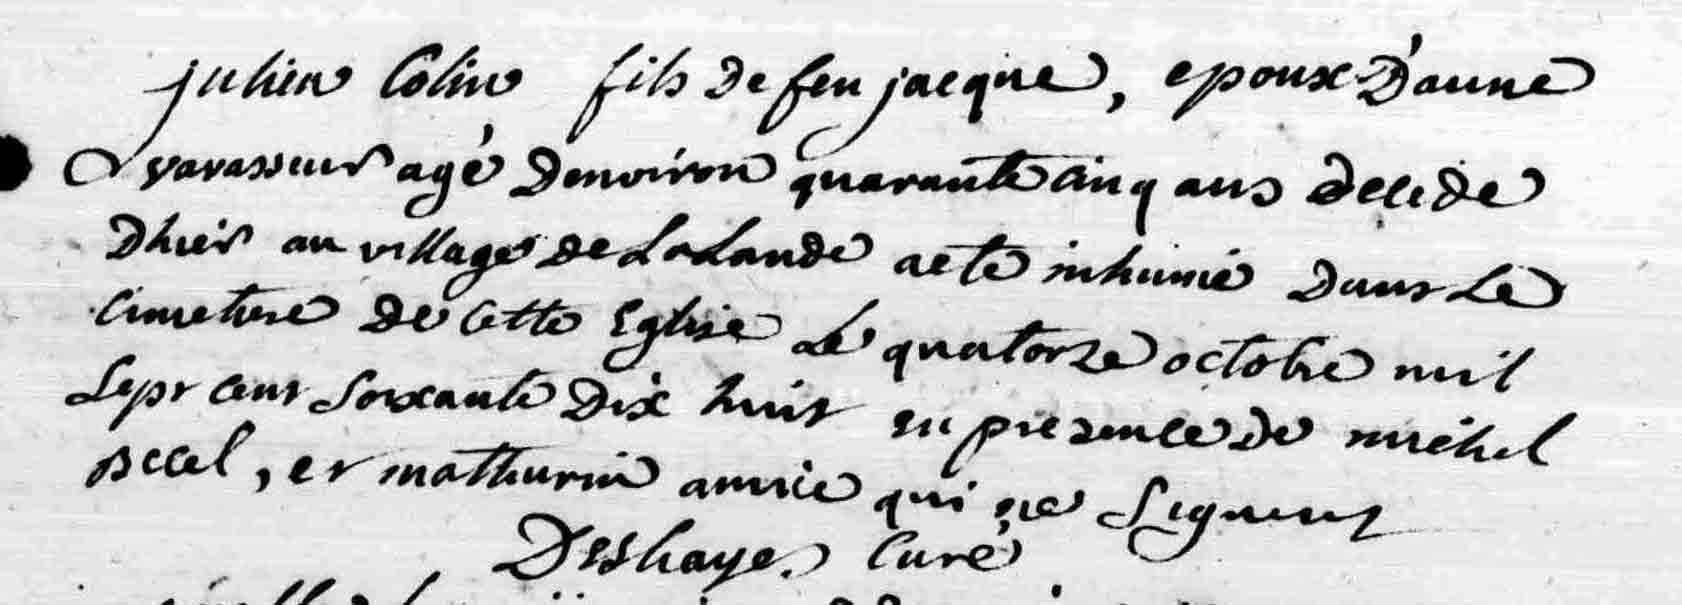 julien Colin fils de feu jacque, epoux D'anne
vavasseur agé Denviron quarante cinq ans decede
Dhier au village de La Lande a ete inhumé Dans Le
Cimetiere de Cette Eglise Le quatorze octobre mil
Sept cent Soixante Dix huit en presence de michel
, et mathurin amice qui ne Signent
Deshayes Curé